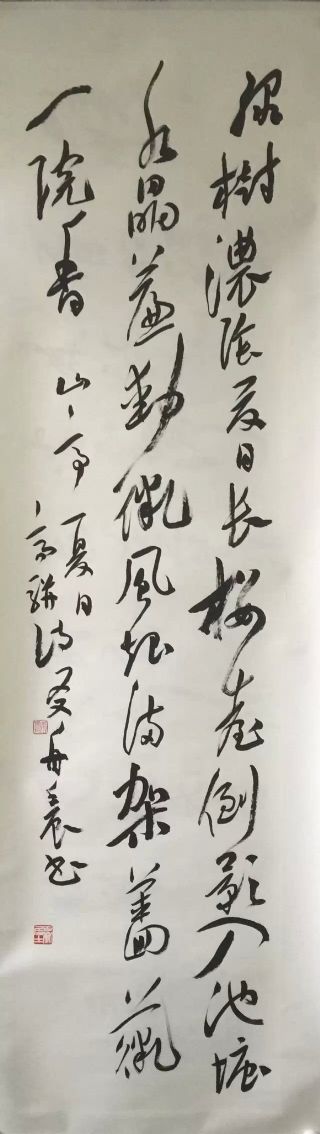 綠樹濃陰夏日長樓臺倒影入池塘
水晶簾動微風起滿架薔薇
一院香
山亭夏日
高駢詩